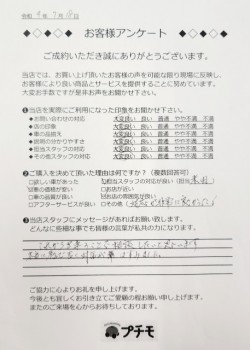 お客様アンケート
ご成約いただき誠にありがとうございます。
当店では、お買い上げ頂いたお客様の声を可能な限り現場に反映し、
お客様により良い商品とサービスを提供することに努めています。
大変お手数ですが是非お声をお聞かせ下さい。
❶当店を実際にご利用になった印象をお聞かせ下さい。
お問い合わせの対応 大変良い 良い 普通 やや不満 不満
店の印象 大変良い 良い 普通 やや不満 不満
車の品揃え 大変良い 良い 普通 やや不満 不満
価格の分かりやすさ 大変良い 良い 普通 やや不満 不満
担当スタッフの対応 大変良い 良い 普通 やや不満 不満
その他スタッフの対応 大変良い 良い 普通 やや不満 不満
❷ご購入を決めて頂いた理由は何ですか？（複数回答可）
□欲しい車があった 担当スタッフの対応が良い（担当
□車の価格が安い □お店が近い
□車の品質が良い □お店の雰囲気が良い
□アフターサービスが良い □その他（
❸当店スタッフにメッセージがあればお願い致します。
どんなに些細な事でも皆様の言葉が私共の力になります。
ご協力に心よりお礼を申し上げます。
今後とも宜しくお引き立てご愛顧の程お願い申し上げます。
またのご来場を心からお待ちしております。
プチモ